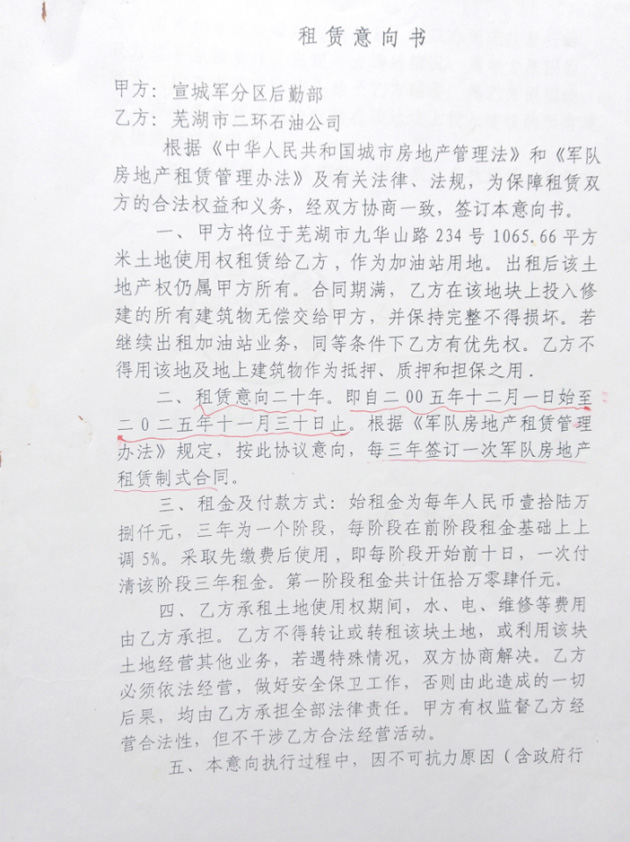 租赁意向书
甲方：宣城军分区后勤部
乙方：芜湖市二环石油公司
根据《中华人民共和国城市房地产管理法》和《军队
房地产租赁管理办法》及有关法律、法规，为保障租赁双
方的合法权益和义务，经双方协商一致，签订本意向书。
一、甲方将位于芜湖市九华山路234号1065.66平方
米土地使用权租赁给乙方，作为加油站用地。出租后该土
地产权仍属甲方所有。合同期满，乙方在该地块上投入修
建的所有建筑物无偿交给甲方，并保持完整不得损坏。若
继续出租加油站业务，同等条件下乙方有优先权。乙方不
得用该地及地上建筑物作为抵押、质押和担保之用.
二、租赁意向二十年。即自二00五年十二月一日始至
二0二五年十一月三十日止。根据《军队房地产租赁管理
办法》规定，按此协议意向，每三年签订一次军队房地产
租赁制式合同。
三、租金及付款方式：始租金为每年人民币壹拾陆万
捌仟元，三年为一个阶段，每阶段在前阶段租金基础上上
调5%。采取先缴费后使用，即每阶段开始前十日，一次付
清该阶段三年租金。第一阶段租金共计伍拾万零肆仟元。
四、乙方承租土地使用权期间，水、电、维修等费用
由乙方承担。乙方不得转让或转租该块土地，或利用该块
土地经营其他业务，若遇特殊情况，双方协商解决。乙方
必须依法经营，做好安全保卫工作，否则由此造成的一切
后果，均由乙方承担全部法律责任。甲方有权监督乙方经
营合法性，但不干涉乙方合法经营活动。
五、本意向执行过程中，因不可抗力原因（含政府行